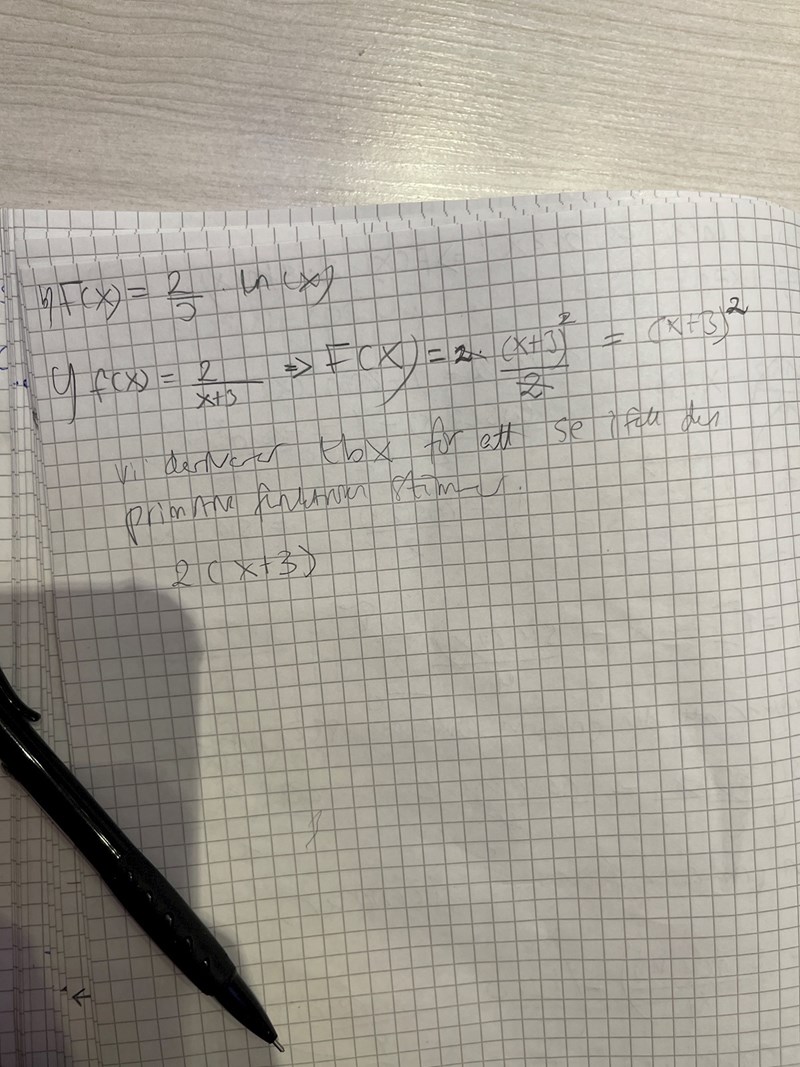 F(x) = 2/3 · ln(x)
f(x) = 2/(x+3) ⇒ F(x) = 2 · (x+3)²/2 = (x+3)²
vi deriverar tbx för att se ifall den
primitiva funktionen stämmer.
2(x+3)
←